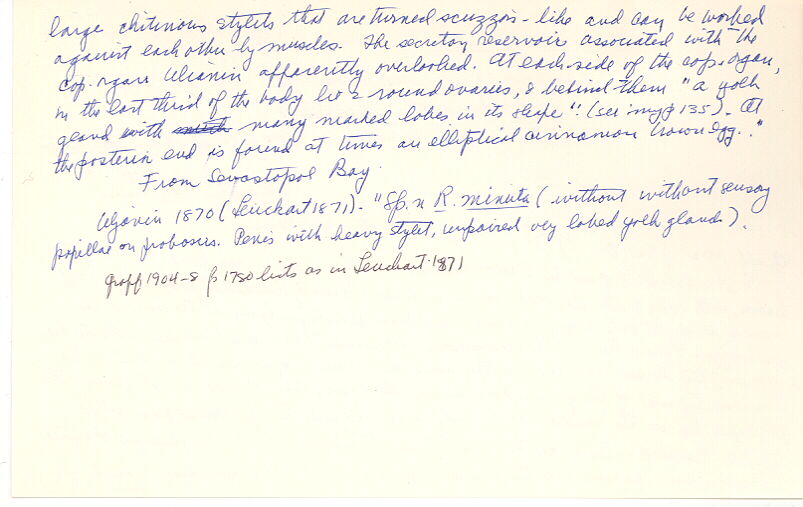 large chitinous stylets that are turned scuzzors-like and can be worked
against each other by muscles. The secretory reservoir associated with the
cop. organ Ulianin apparently overlooked. At each side of the cop. organ,
in the last third of the body lie 2 round ovaries, & behind them "a yolk
gland with many marked lobes in its shape". (see my p 135). At
the posterior end is found at times an elliptical cinnamon brown egg.."
From Sevastopol Bay.
Uljanin 1870 (Leuckart 1871). "Sp. n R. minuta (without without sensory
papillae on proboscis. Penis with heavy stylet, unpaired very lobed yolk gland).
Graff 1904-8 p 1780 lists as in Leuckart 1871